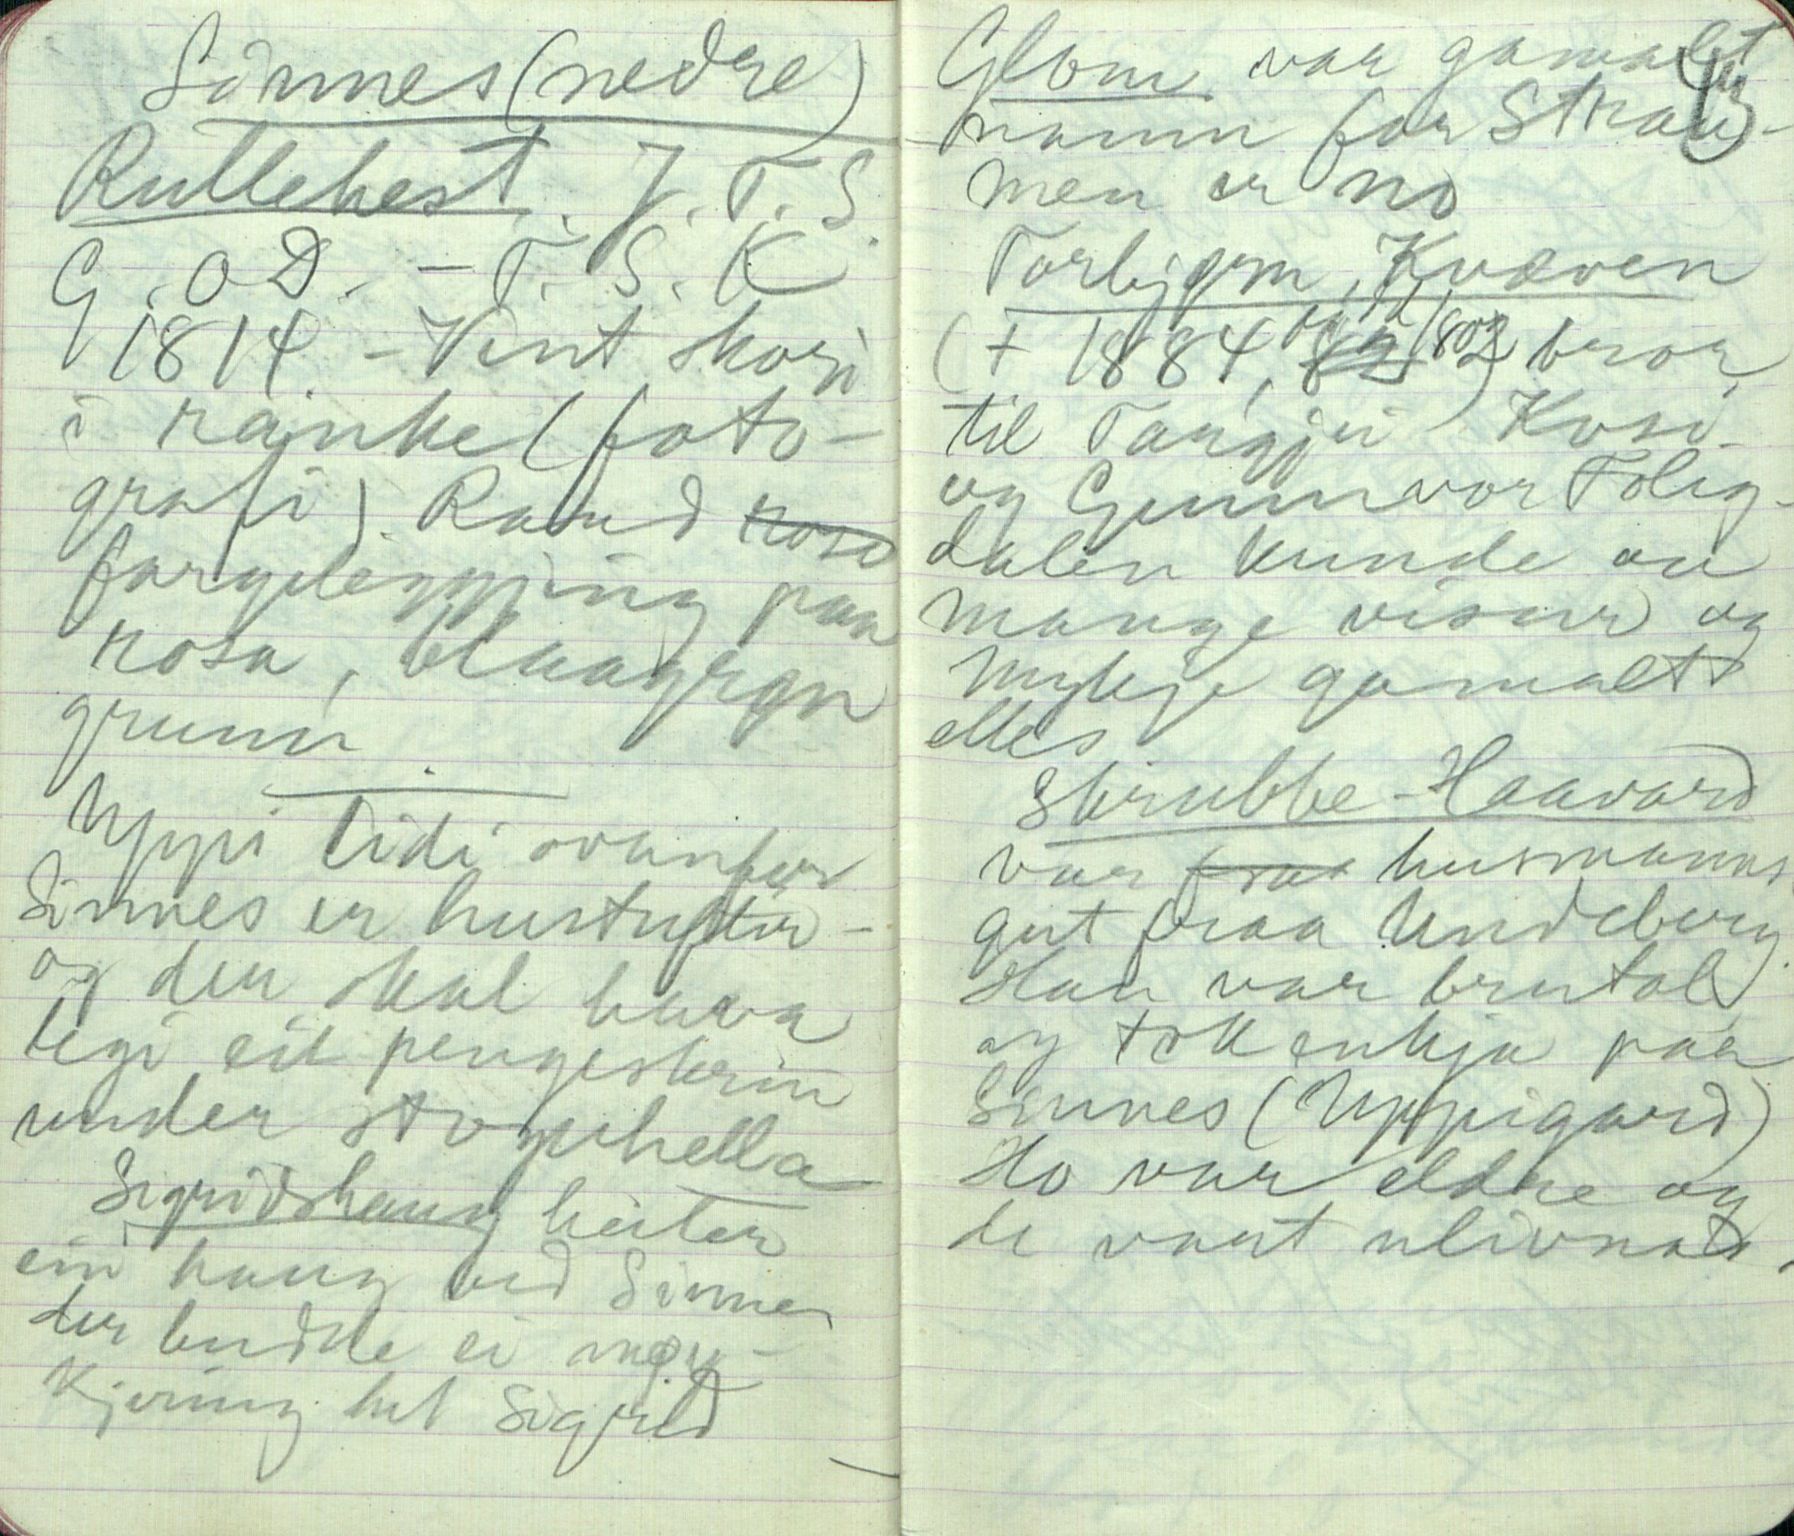 Sinnes (nedre)
Rullehest. J. T. S.
G. O D. - T. S. K
1814 - Vent skori
i ranke (foto-
grafi). Raud rosa
fargelegging paa
rosa, blaagrøn
grunn
Uppi Lidi ovanfor
Sinnes er hustufter -
og der skal hava
legi eit pengeskrin
under stoguhella
Sigridshaug heiter
ein haug ved Sinnes
der budde ei møy-
kjering het Sigrid
Glom var gamalt
namn for Strau-
men er no
Torbjørn Kvæven
(+ 1884, 82 1802) bror
til Targjei Kosi
og Gunnvor Tolig-
dalen kunde au
mange visur og
mykje gamalt
elles
Skrubbe-Haavard
var fraa husmanns
gut fraa Undeberg.
Han var brutal
og tok enkja paa
Sinnes (Uppigard)
Ho var eldre og
de vart ulivnad.